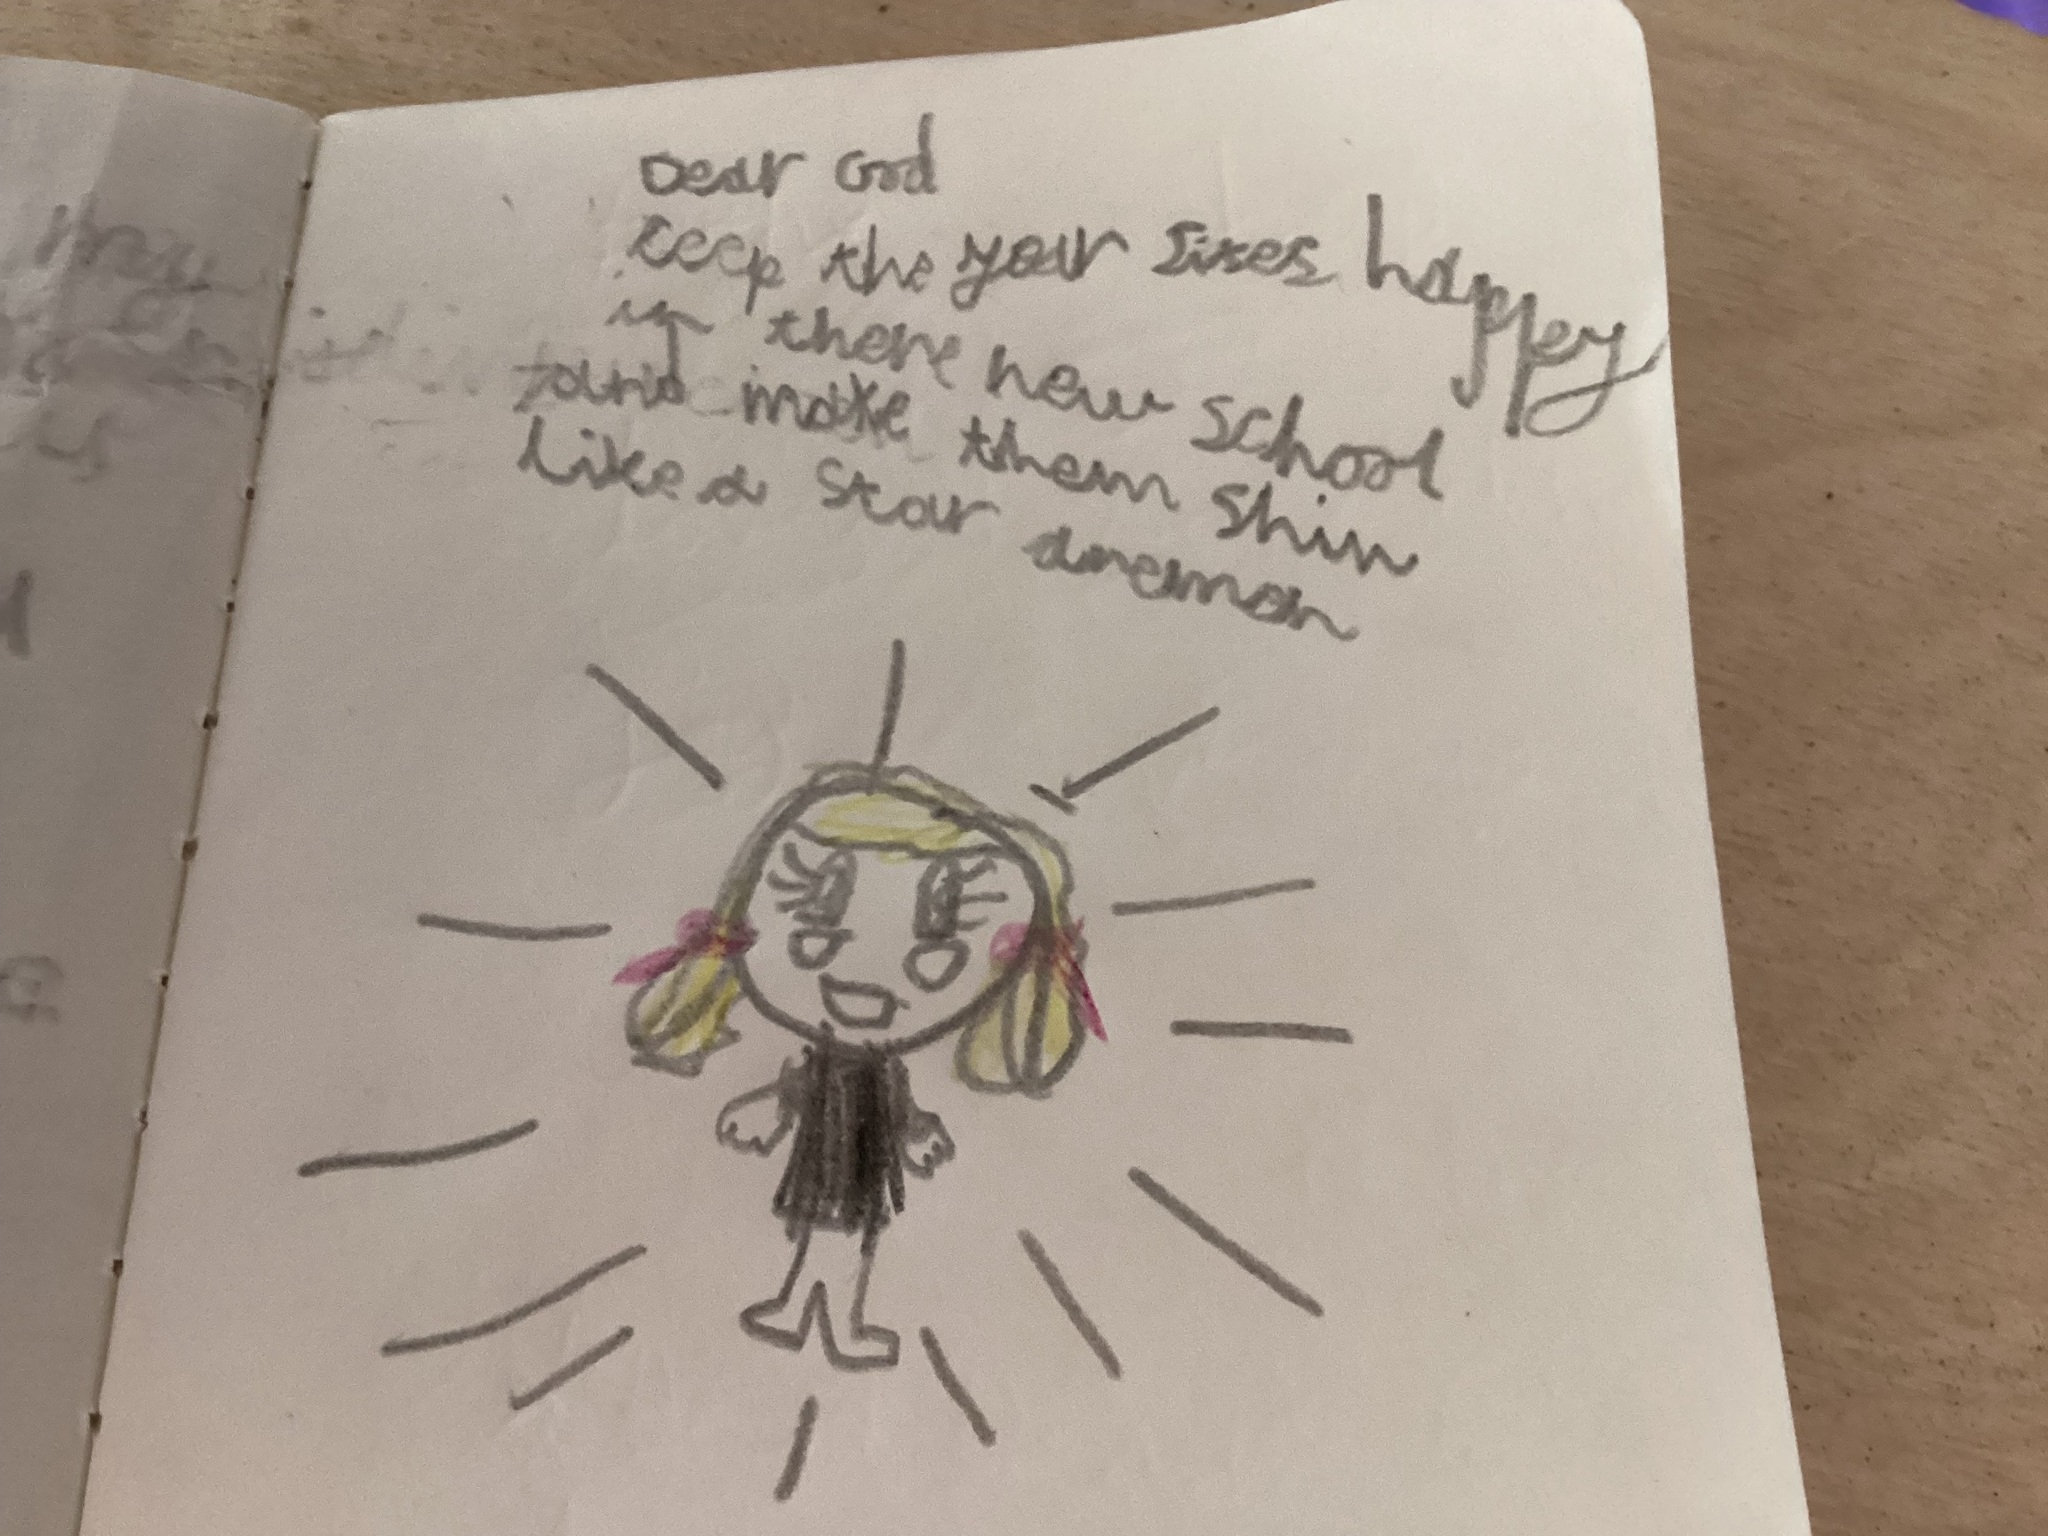 Dear God
keep the year sixes happey
in there new school
and make them shin
like a star